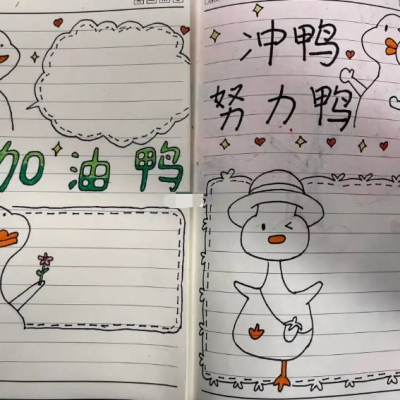 加油鸭
冲鸭
努力鸭